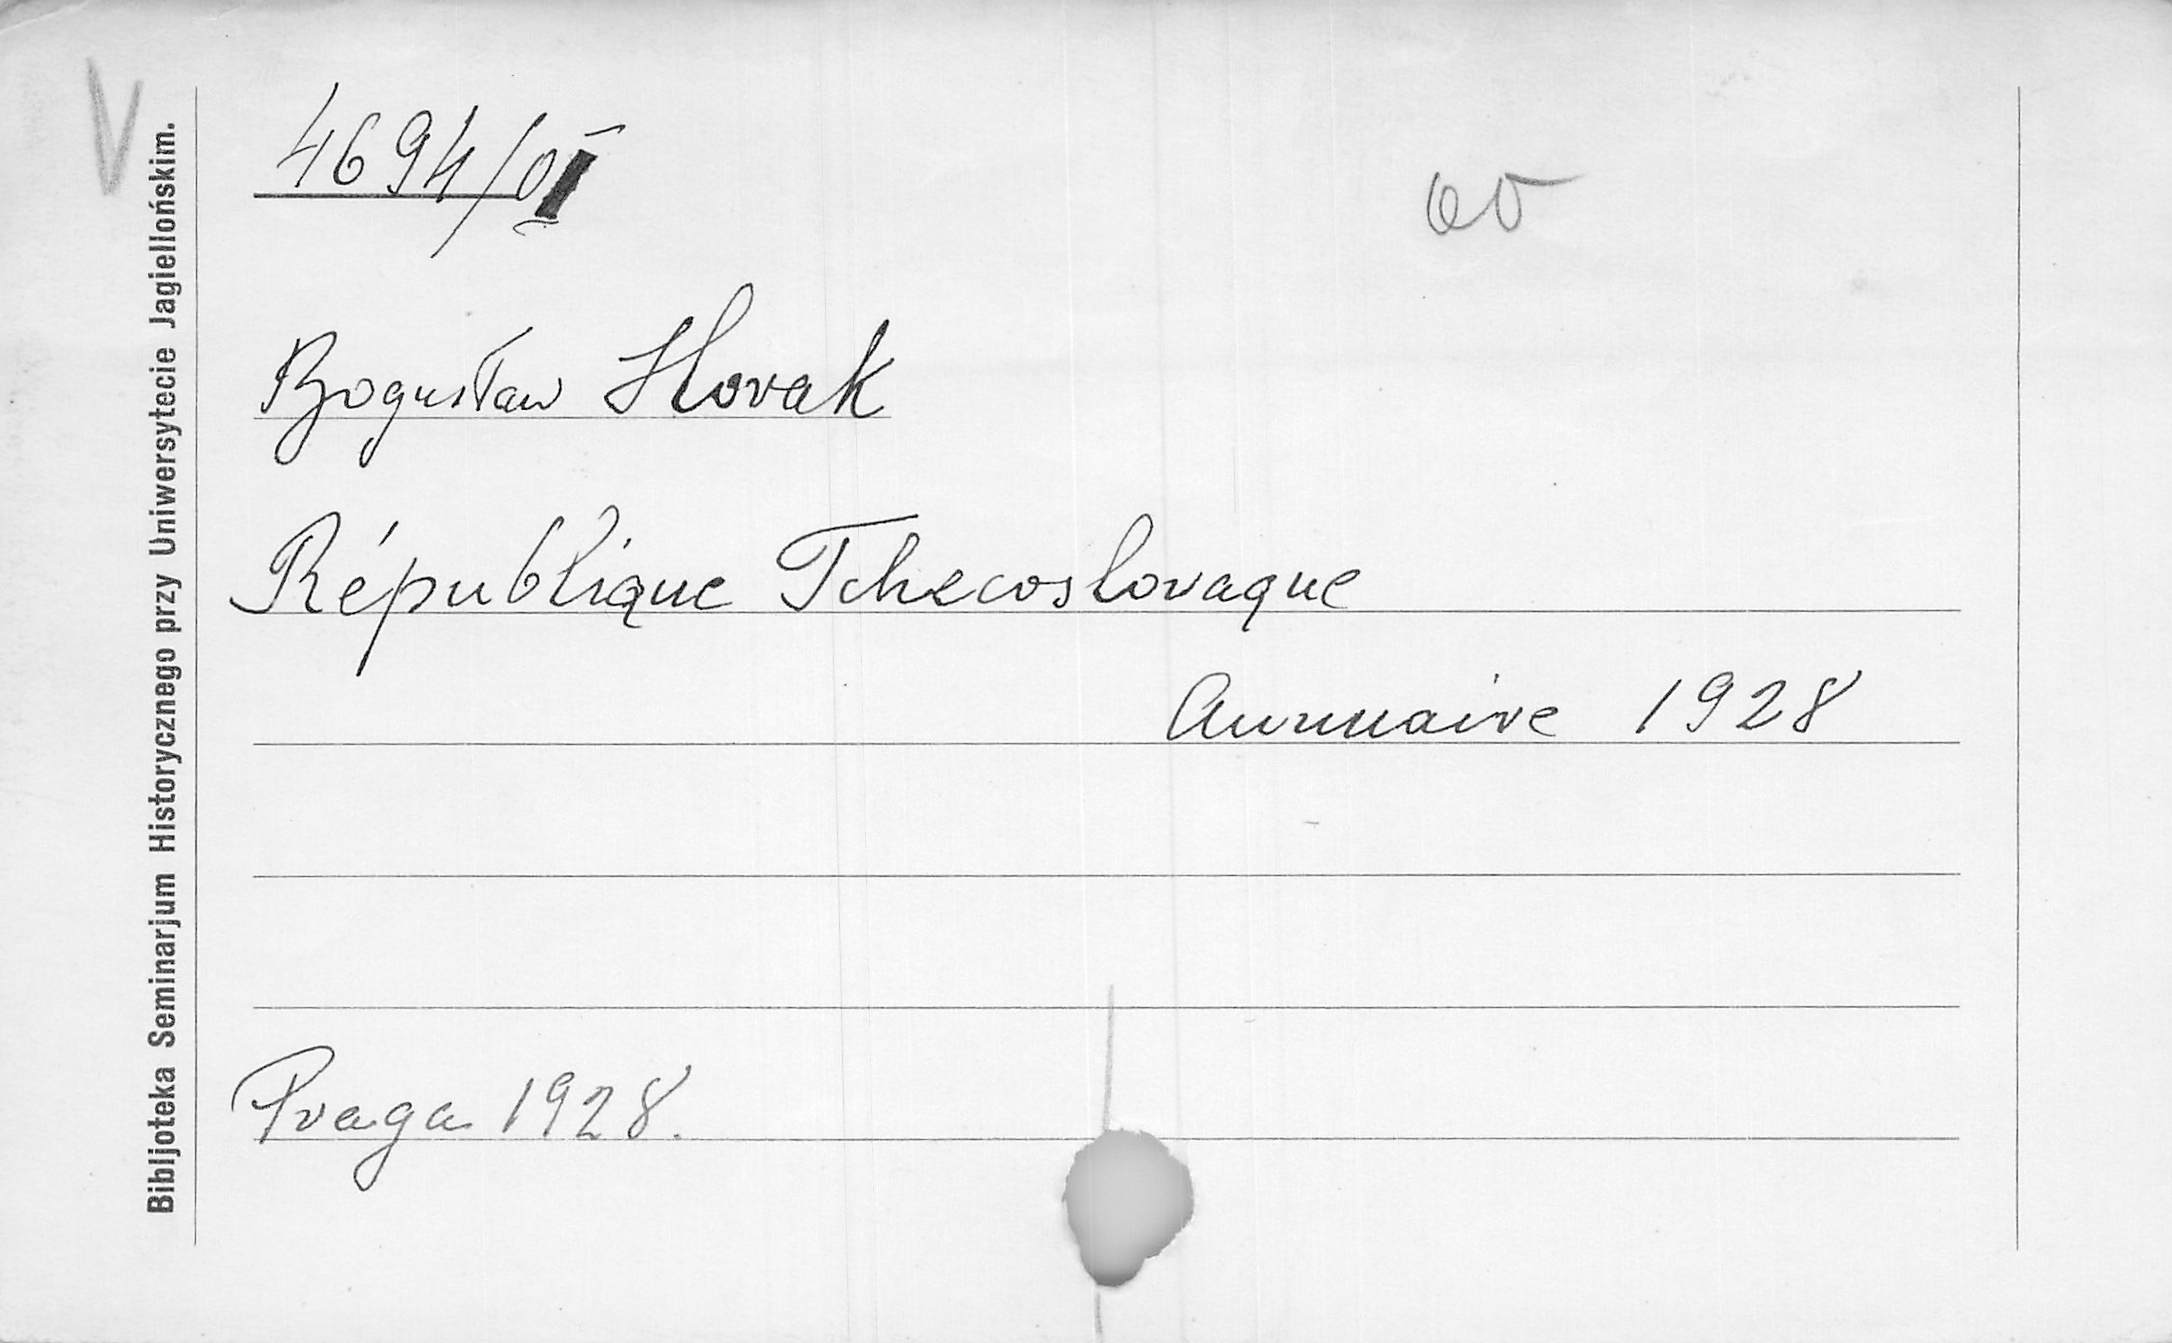 Bibljoteka Seminarjum Historycznego przy Uniwersytecie Jagiellońskim.
V
4694/
Bogusław Hovak
République Tchecoslovaque
Annuaire 1928
Praga 1928.